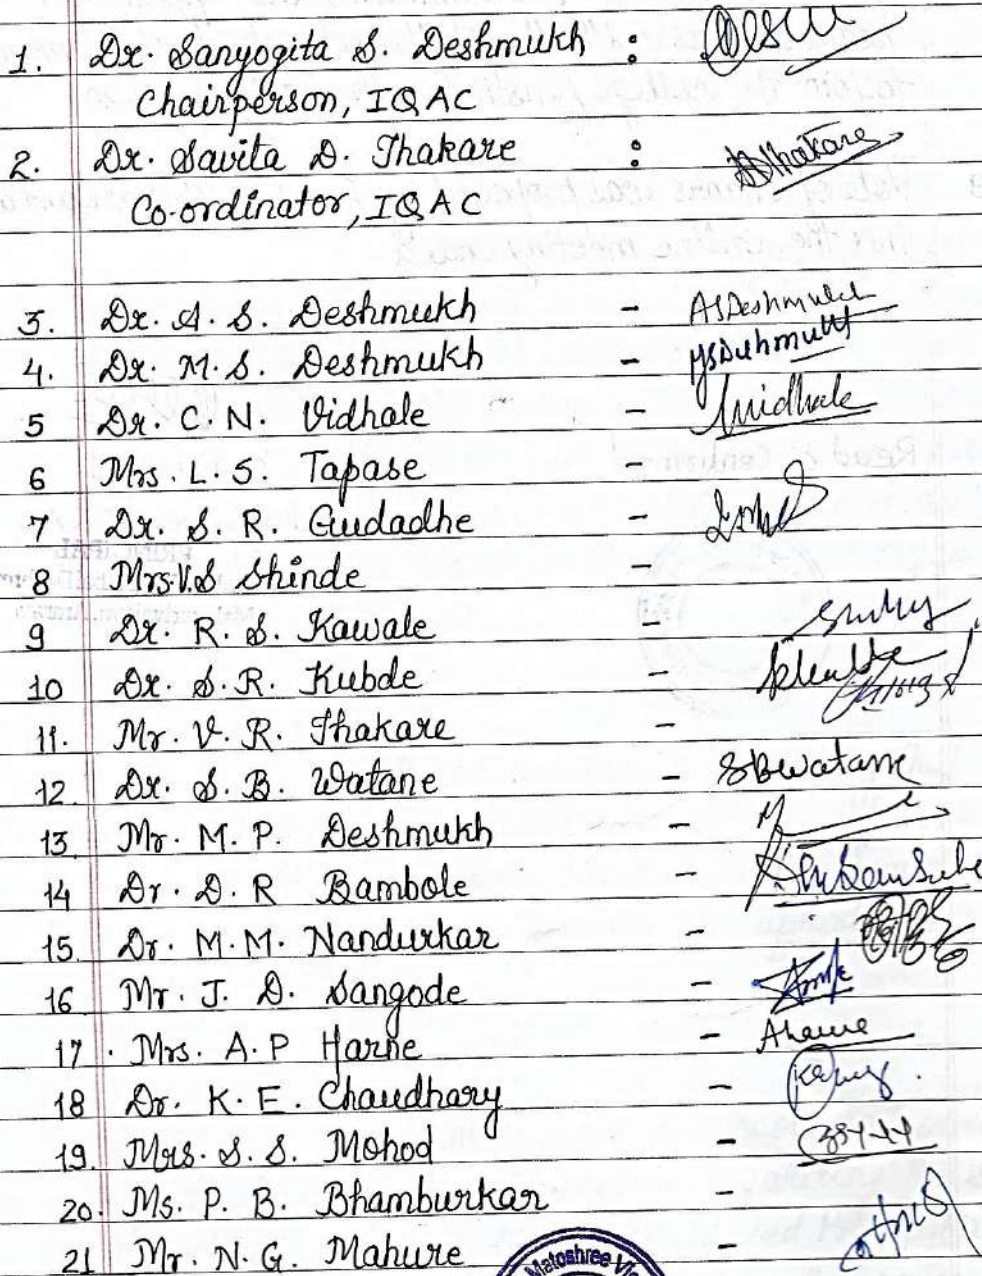 1. Dr. Sanyogita S. Deshmukh :
Chairperson, IQAC
2. Dr. Savita D. Thakare : Thakare
Co-ordinator, IQAC
3. Dr. A. S. Deshmukh - ASDeshmukh
4. Dr. M. S. Deshmukh - MSDeshmukh
5 Dr. C. N. Vidhale - Vidhale
6 Mrs. L. S. Tapase -
7 Dr. S. R. Gudadhe -
8 Mrs. V. S Shinde -
9 Dr. R. S. Kawale -
10 Dr. S. R. Kubde -
11. Mr. V. R. Thakare -
12. Dr. S. B. Watane - SBWatane
13. Mr. M. P. Deshmukh -
14 Dr. D. R Bambole -
15 Dr. M. M. Nandurkar -
16 Mr. J. D. Sangode -
17. Mrs. A. P Harne - Aharne
18 Dr. K. E. Chaudhary -
19. Mrs. S. S. Mohod -
20. Ms. P. B. Bhamburkar -
21 Mr. N. G. Mahure -
Matoshree